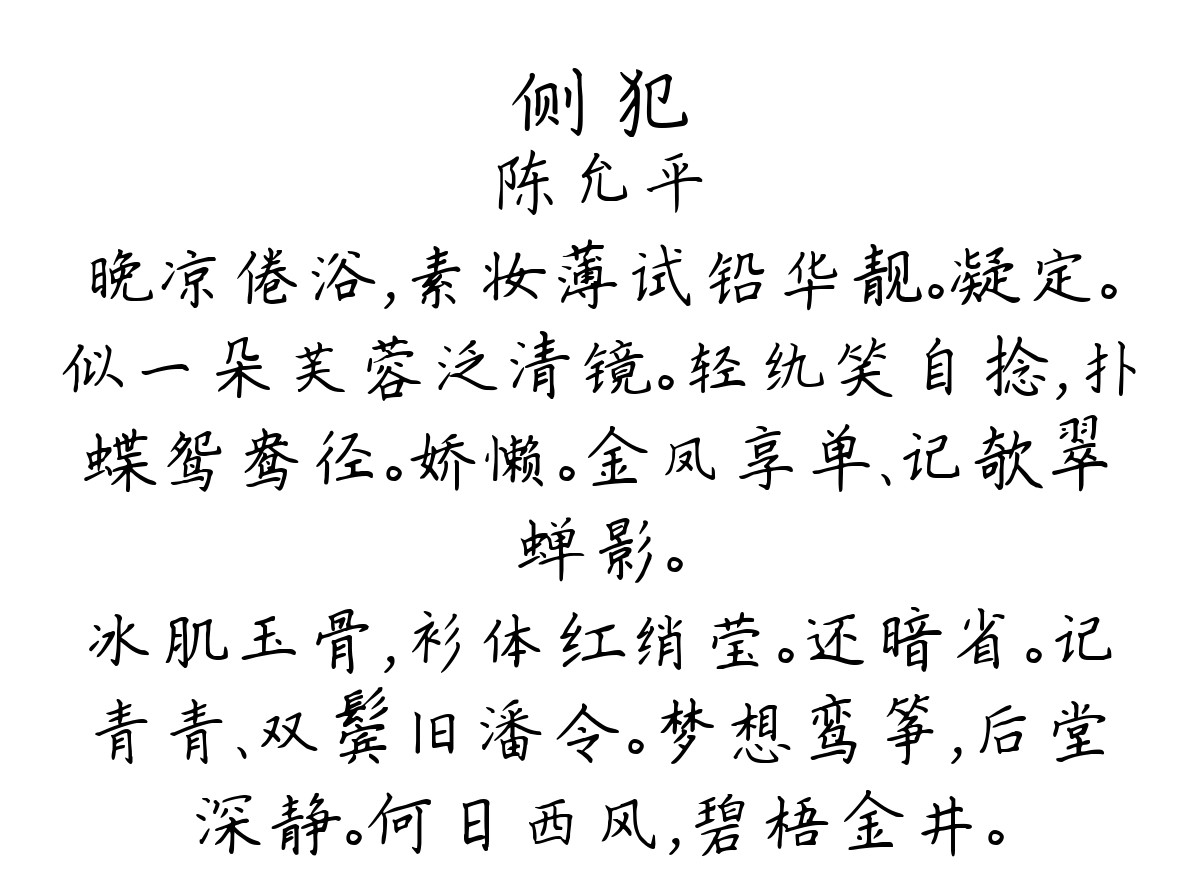 侧犯
陈允平
晚凉倦浴,素妆薄试铅华靓。凝定。
似一朵芙蓉泛清镜。轻纨笑自捻,扑
蝶鸳鸯径。娇懒。金凤享单、记欹翠
蝉影。
冰肌玉骨,衫体红绡莹。还暗省。记
青青、双鬓旧潘令。梦想鸾筝,后堂
深静。何日西风,碧梧金井。